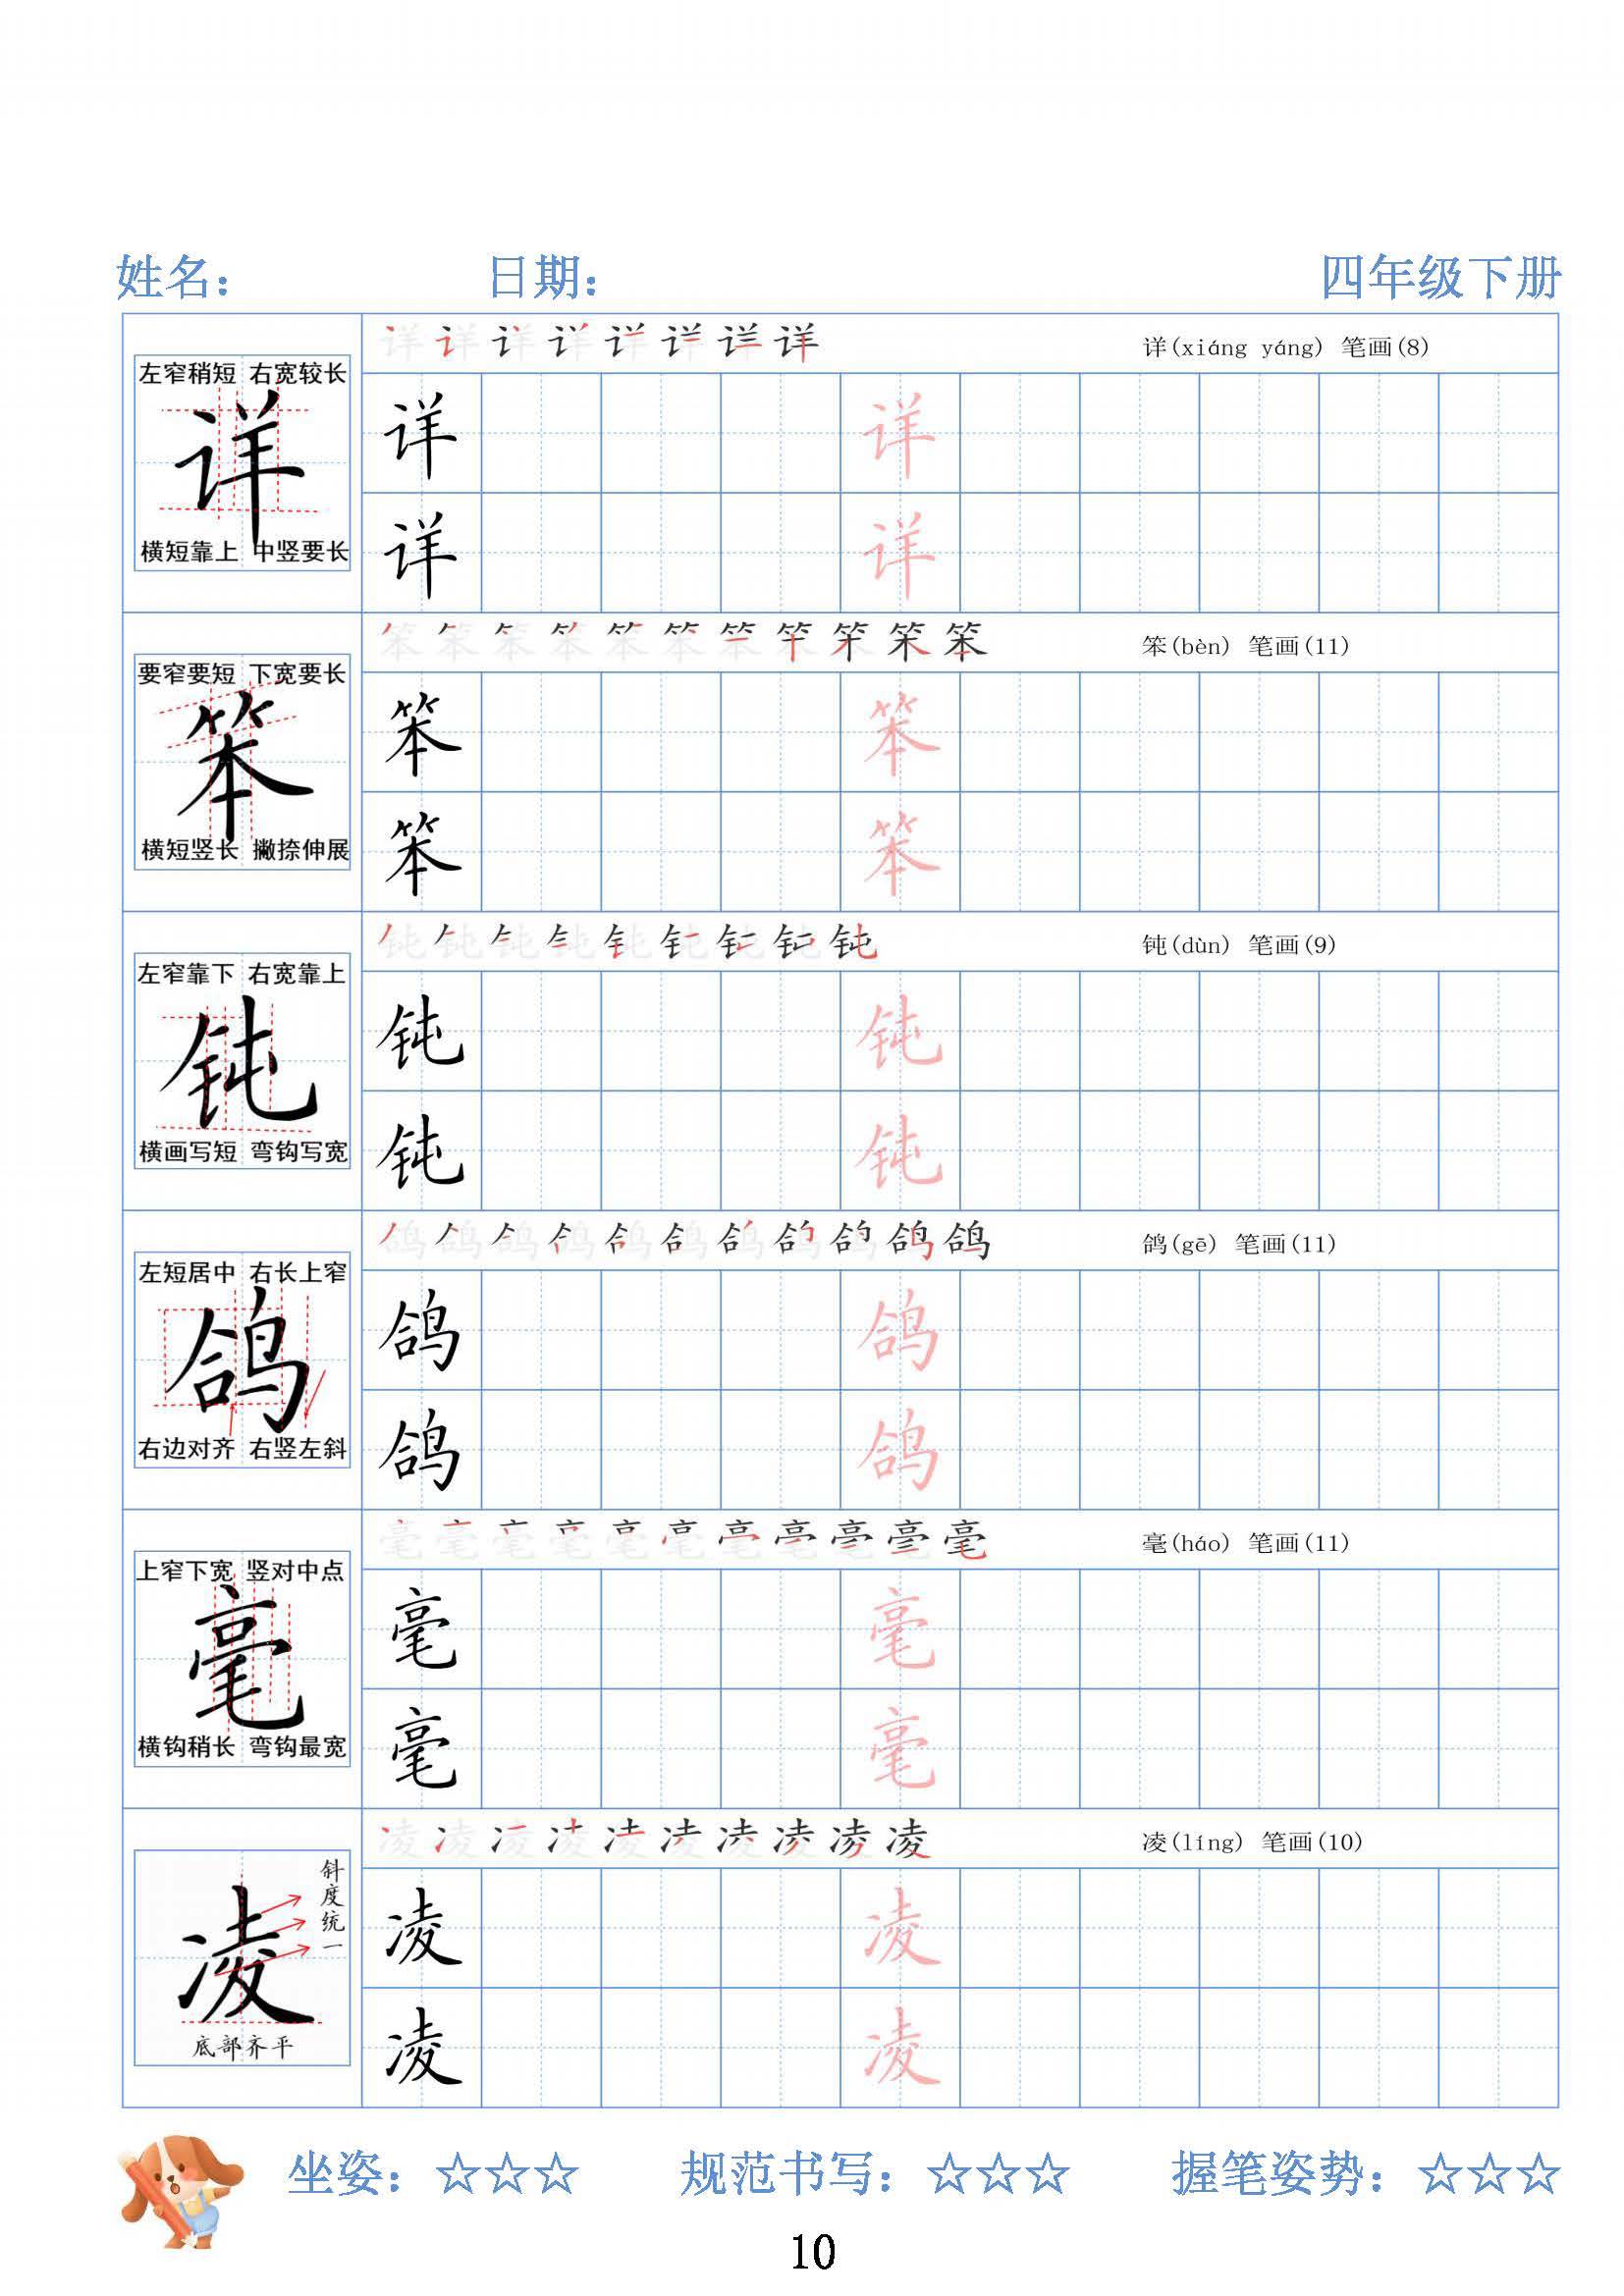 姓名： 日期： 四年级下册
详 详 详 详 详 详 详 详 详(xiáng yáng) 笔画(8)
左窄稍短 右宽较长
详
横短靠上 中竖要长
详 详
详 详
笨 笨 笨 笨 笨 笨 笨 笨 笨 笨 笨 笨(bèn) 笔画(11)
要窄要短 下宽要长
笨
横短竖长 撇捺伸展
笨 笨
笨 笨
钝 钝 钝 钝 钝 钝 钝 钝 钝 钝(dùn) 笔画(9)
左窄靠下 右宽靠上
钝
横画写短 弯钩写宽
钝 钝
钝 钝
鸽 鸽 鸽 鸽 鸽 鸽 鸽 鸽 鸽 鸽 鸽 鸽(gē) 笔画(11)
左短居中 右长上窄
鸽
右边对齐 右竖左斜
鸽 鸽
鸽 鸽
毫 毫 毫 毫 毫 毫 毫 毫 毫 毫 毫 毫(háo) 笔画(11)
上窄下宽 竖对中点
毫
横钩稍长 弯钩最宽
毫 毫
毫 毫
凌 凌 凌 凌 凌 凌 凌 凌 凌 凌 凌(líng) 笔画(10)
斜度统一
凌
底部齐平
凌 凌
凌 凌
坐姿：☆☆☆ 规范书写：☆☆☆ 握笔姿势：☆☆☆
10